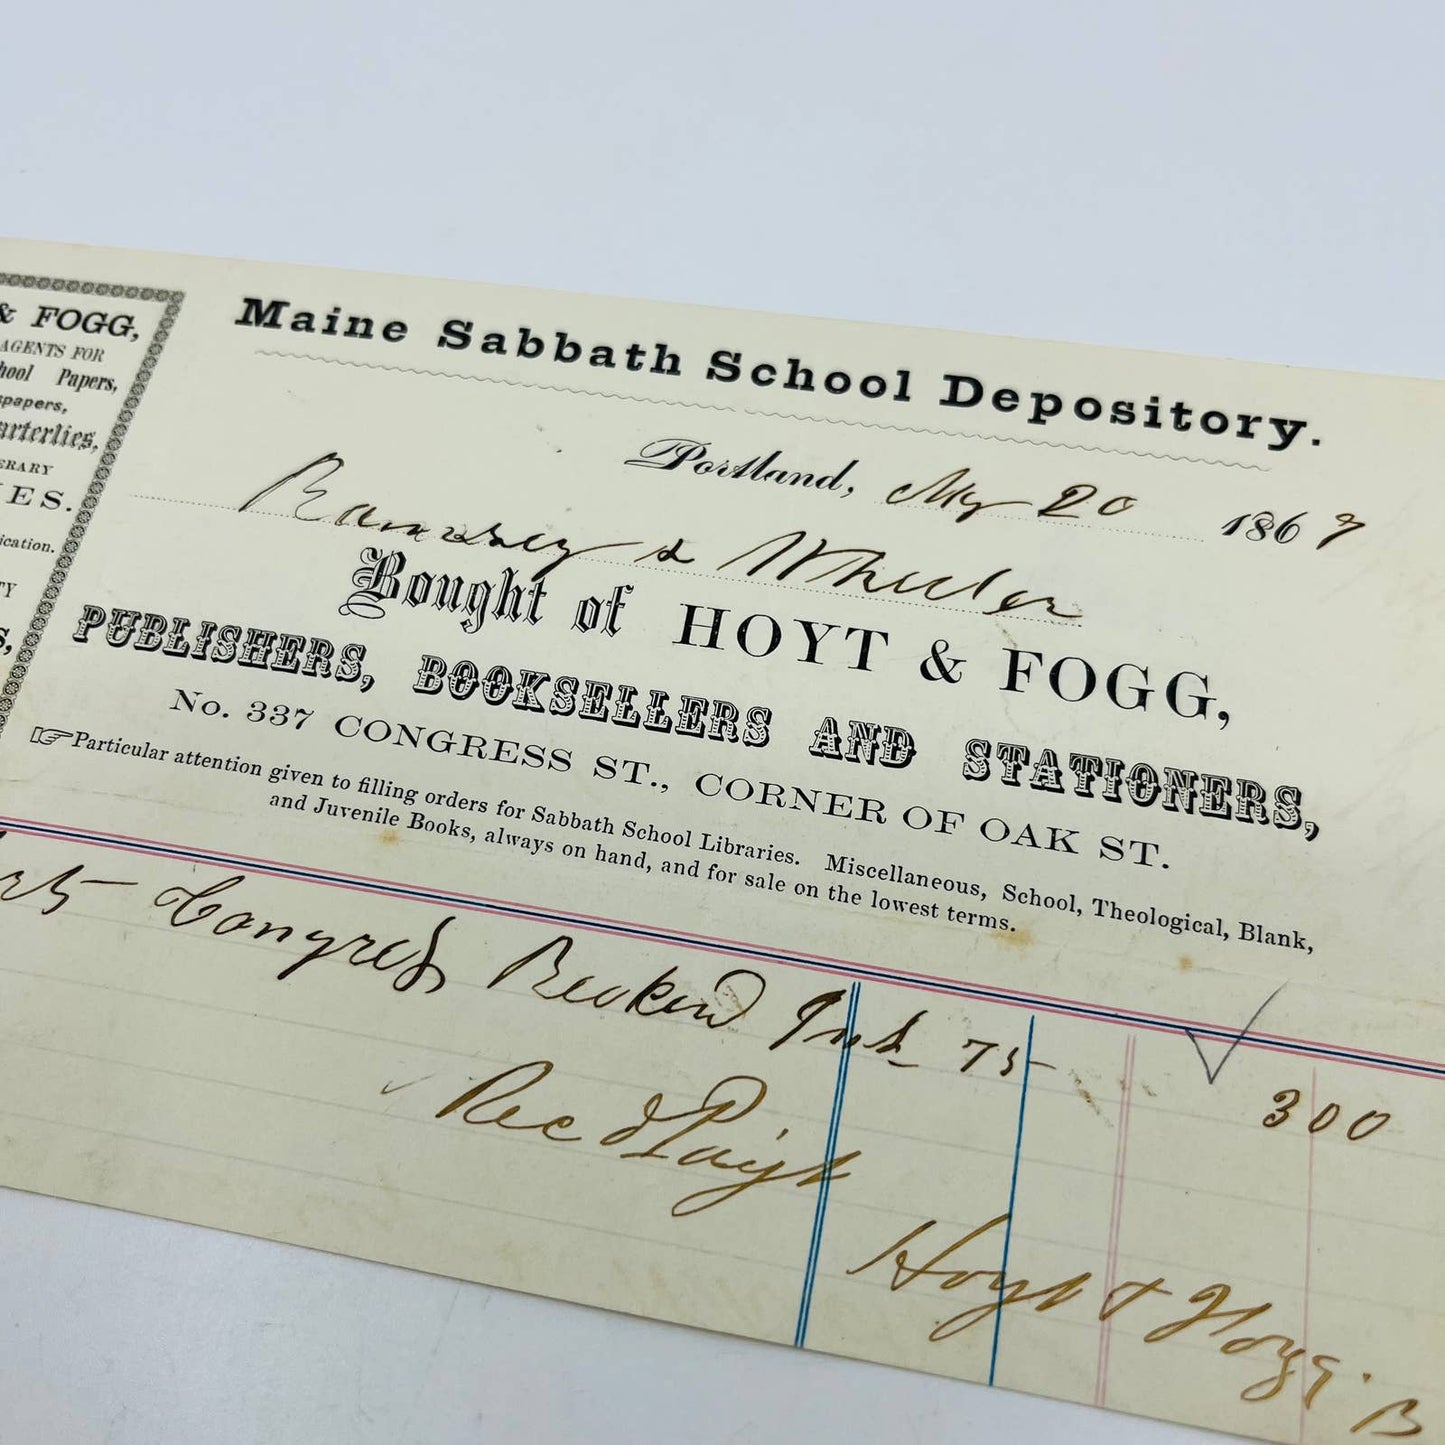 & FOGG,
AGENTS FOR
hool Papers,
spapers,
arterlies,
ERARY
IES.
ication.
TY
S,
Maine Sabbath School Depository.
Portland, My 20 1869
Ramsey & Wheeler
Bought of HOYT & FOGG,
PUBLISHERS, BOOKSELLERS AND STATIONERS,
No. 337 CONGRESS ST., CORNER OF OAK ST.
☞Particular attention given to filling orders for Sabbath School Libraries. Miscellaneous, School, Theological, Blank,
and Juvenile Books, always on hand, and for sale on the lowest terms.
Congress Ink 75 300
Rec d Payt
Hoyt & Fogg. B